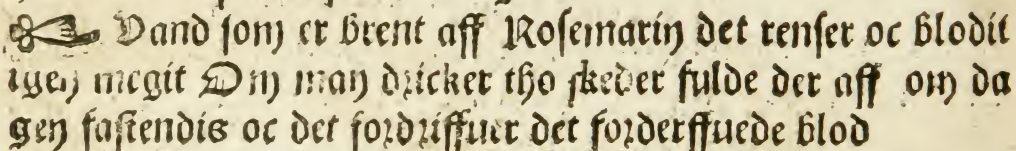 ☞ Vand som er brent aff Rosemarin det renser oc blodit
igen megit Om man dricker tho skeder fulde der aff om da
gen fastendis oc det fordriffuer det forderffuede blod